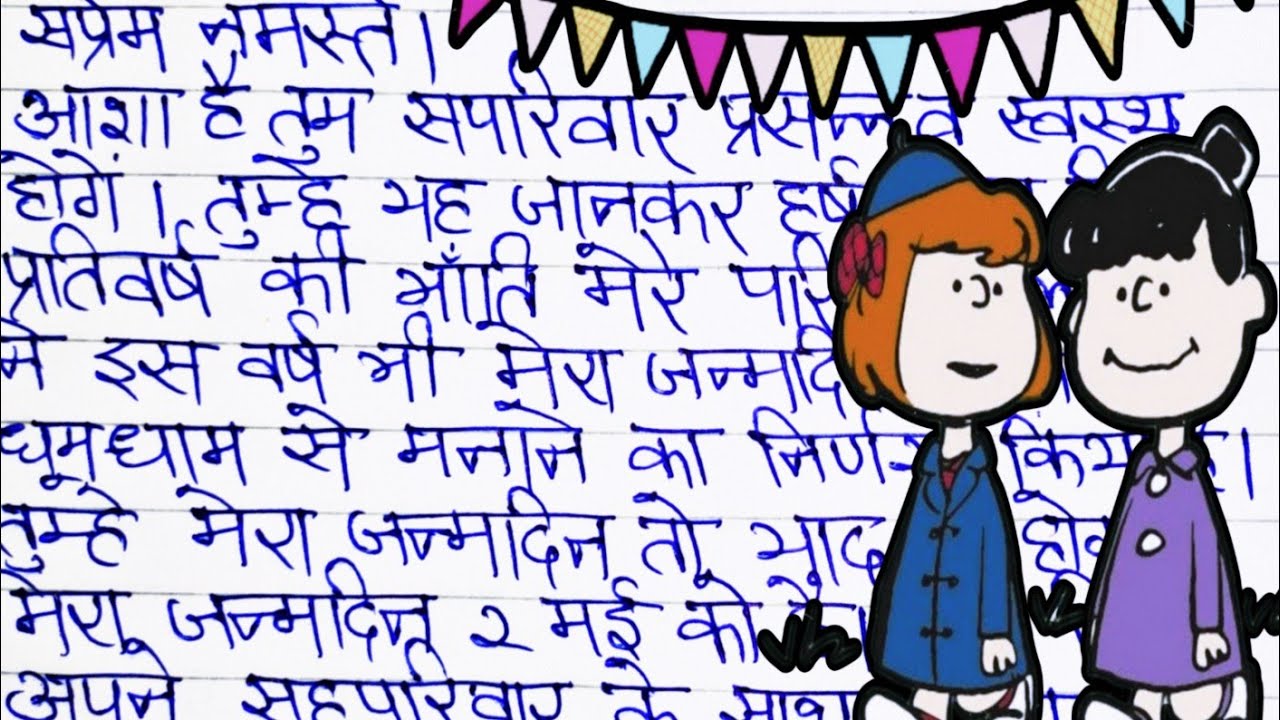 सप्रेम नमस्ते।
आशा है तुम सपरिवार प्रसन्न व स्वस्थ
होगें। तुम्हे यह जानकर हर्ष
प्रतिवर्ष की भाँति मेरे
ने इस वर्ष भी मेरा
धूमधाम से मनाने का निर्णय
तुम्हे मेरा जन्मदिन तो याद
मेरा जन्मदिन २ मई को है।
अपने सहपरिवार के साथ